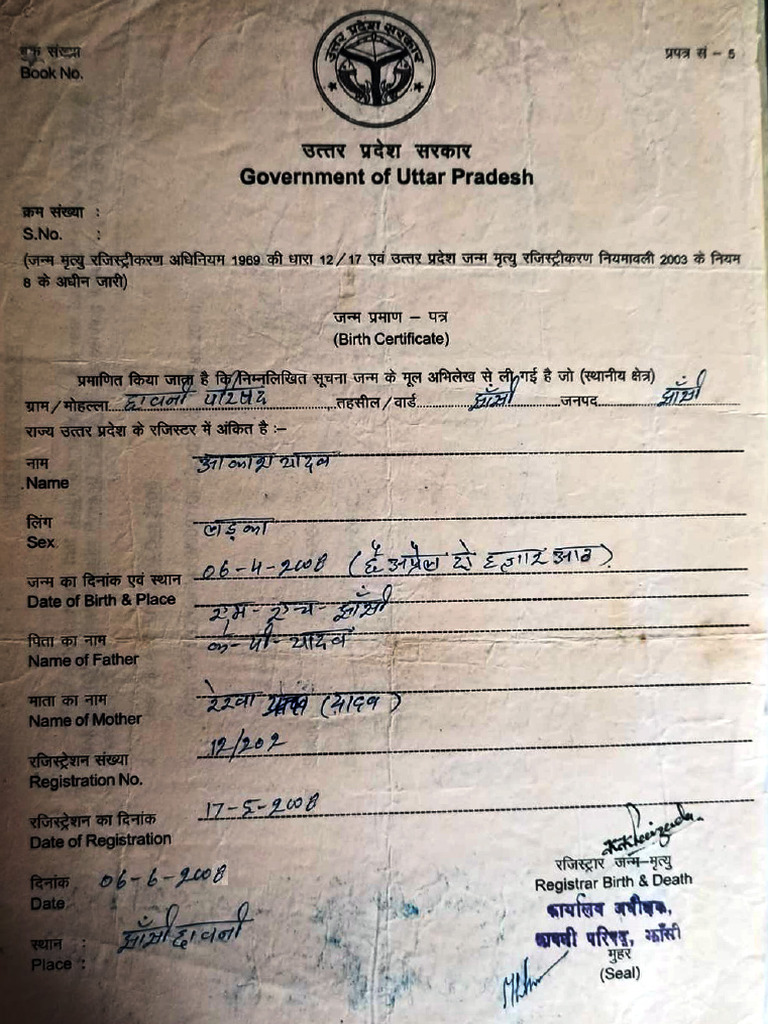 उत्तर प्रदेश सरकार
बुक संख्या
Book No.
प्रपत्र सं - 5
उत्तर प्रदेश सरकार
Government of Uttar Pradesh
क्रम संख्या :
S.No. :
(जन्म मृत्यु रजिस्ट्रीकरण अधिनियम 1969 की धारा 12/17 एवं उत्तर प्रदेश जन्म मृत्यु रजिस्ट्रीकरण नियमावली 2003 के नियम
8 के अधीन जारी)
जन्म प्रमाण – पत्र
(Birth Certificate)
प्रमाणित किया जाता है कि निम्नलिखित सूचना जन्म के मूल अभिलेख से ली गई है जो (स्थानीय क्षेत्र)
ग्राम/मोहल्ला छावनी परिषद तहसील/वार्ड झाँसी जनपद झाँसी
राज्य उत्तर प्रदेश के रजिस्टर में अंकित है :–
नाम आकाश यादव
Name
लिंग लड़का
Sex
जन्म का दिनांक एवं स्थान 06-4-2008 (छै अप्रैल दो हजार आठ)
Date of Birth & Place एम-एच-झाँसी
पिता का नाम के-पी-यादव
Name of Father
माता का नाम रेखा (यादव)
Name of Mother
रजिस्ट्रेशन संख्या 12/202
Registration No.
रजिस्ट्रेशन का दिनांक 17-5-2008
Date of Registration
रजिस्ट्रार जन्म–मृत्यु
Registrar Birth & Death
दिनांक 06-6-2008
Date
कार्यालय अधीक्षक,
छावनी परिषद, झाँसी
स्थान : झाँसी छावनी
Place :
मुहर
(Seal)